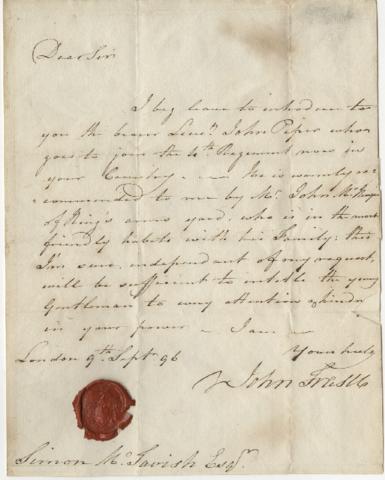 Dear Sir
I beg leave to introduce to
you the bearer Lieut. John Piper who
goes to join the 4th Regement now in
your Country - He is warmly re
commended to me by Mr. John
of King's arms yard, who is in the most
friendly habits with his Family; this
I'm sure, independant of my request,
will be sufficient to entitle the young
Gentleman to every attention &
in your power - I am -
Yours truly
London 9th. Septr. 96
John
Simon McTavish Esqr.